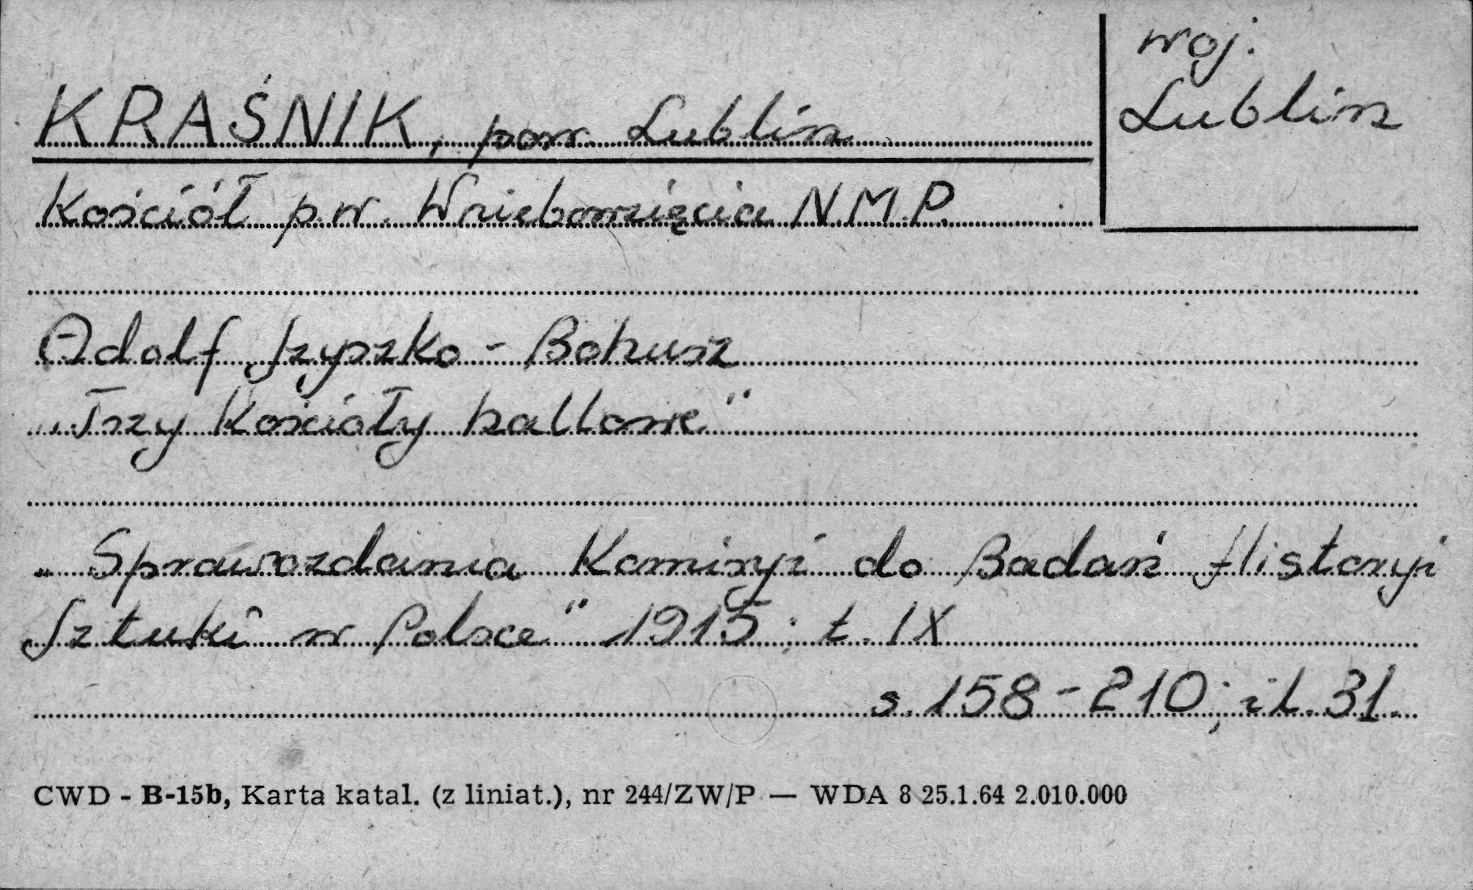 woj.
Lublin
KRAŚNIK, pow. Lublin
Kościół p.w. Wniebowzięcia N.M.P.
Adolf Szyszko - Bohusz
„Trzy Kościoły hallowe"
„Sprawozdania Komisyi do Badań Historyi
Sztuki w Polsce" 1915; t. IX
s. 158-210; il. 31.
CWD - B-15b, Karta katal. (z liniat.), nr 244/ZW/P — WDA 8 25.1.64 2.010.000